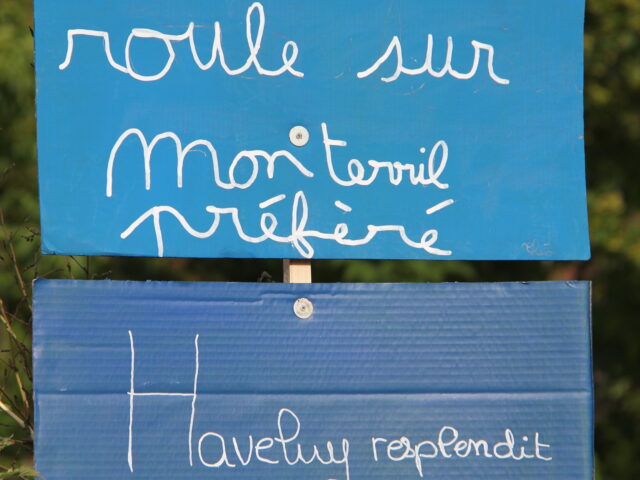 roule sur
mon terril
préfèré
Haveluy resplendit